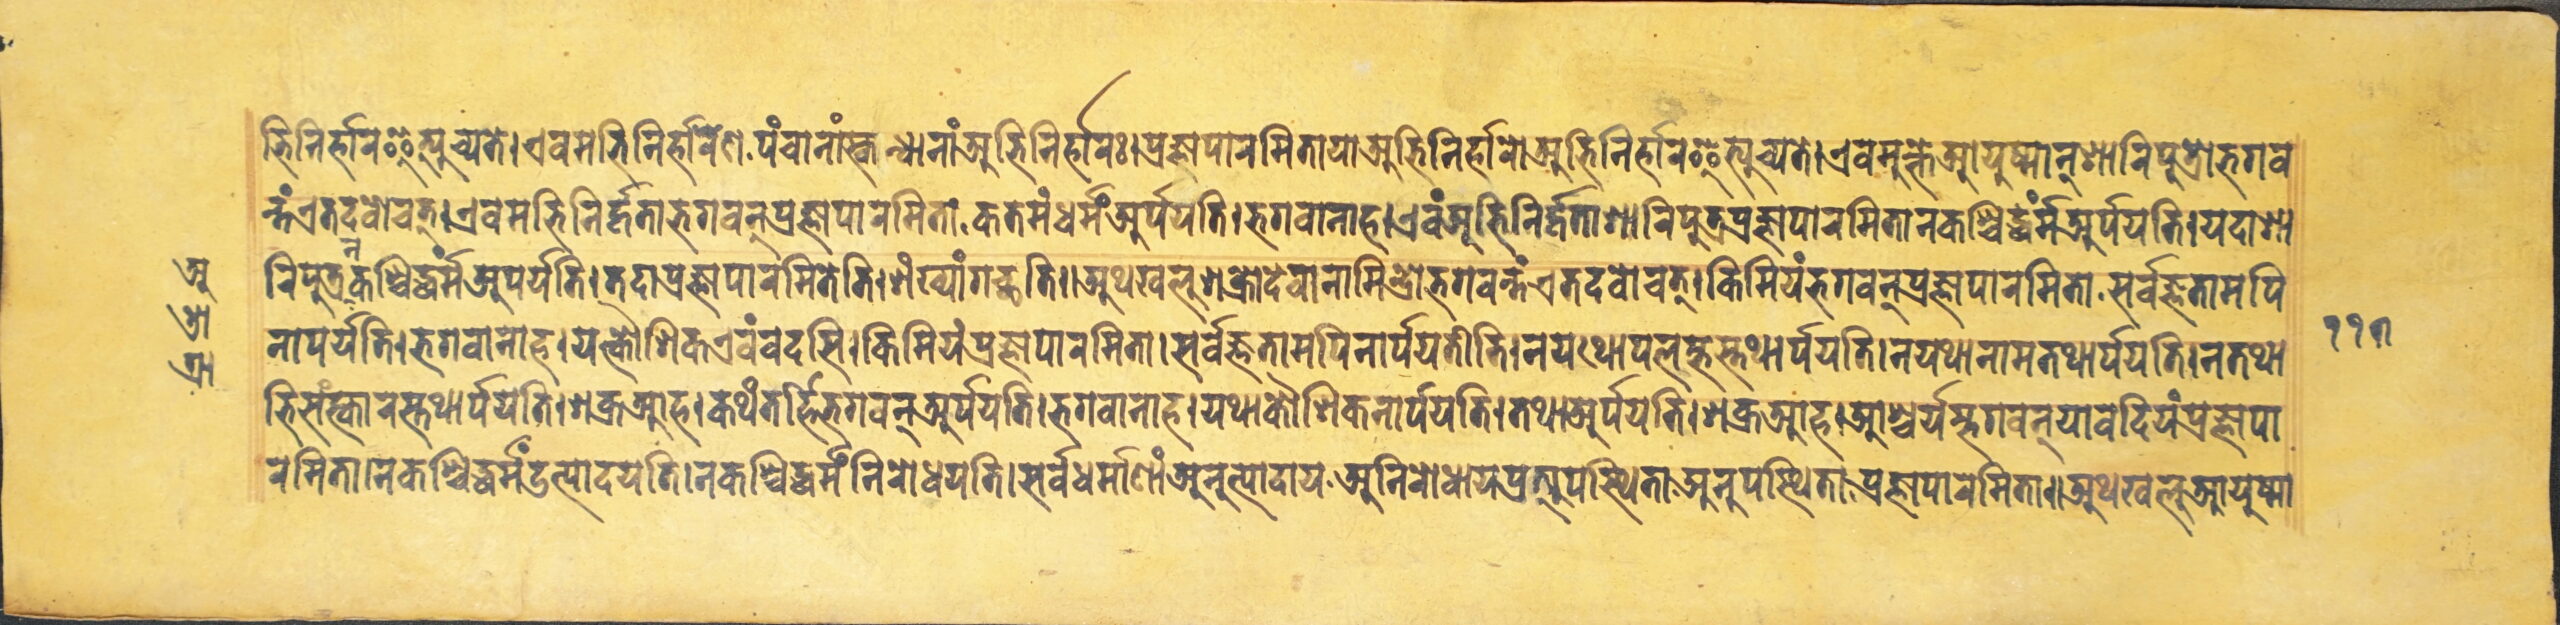 भिनिर्हारइत्युच्यते।एवमभिनिर्हारेण,पंचानांस्कन्धानांअभिनिर्हारः।प्रज्ञापारमितायाअभिनिर्हारोअभिनिर्हारइत्युच्यते।एवमुक्तेआयुष्मान्शारिपुत्रोभगव
न्तंएतदवोचत्।एवमभिनिर्हृताभगवन्प्रज्ञापारमिता,कतमंधर्मंअर्पयति।भगवानाह।एवंअभिनिर्हृताशारिपुत्रप्रज्ञापारमितानकश्चिद्धर्मंअर्पयति।यदाशा
रिपुत्रनकश्चिद्धर्मंअपर्यति।तदाप्रज्ञापारमितेति।शंख्यांगच्छति॥अथखलुशक्रोदेवानामिन्द्रोभगवन्तंएतदवोचत्।किमियंभगवन्प्रज्ञापारमिता,सर्वज्ञतामपि
नापर्यति।भगवानाह।यत्कौशिकएवंवदसि।किमियंप्रज्ञापारमिता।सर्वज्ञतामपिनार्पयतीति।नयथोपलम्भस्तथार्पयति।नयथानामतथार्पयति।नतथा
भिसंस्कारस्तथार्पयेति।शक्रआह।कथंतर्हिभगवन्अर्पयति।भगवानाह।यथाकौशिकनार्पयति।तथाअर्पयति।शक्रआह।आश्चर्यम्भगवन्यावदियंप्रज्ञापा
रमिता।नकश्चिद्धर्मंउत्पादयति।नकश्चिद्धर्मंनिरोधयति।सर्वधर्माणांअनुत्पादाय,अनिरोधायप्रत्युपस्थिता,अनुपस्थिता,प्रज्ञापारमिता॥अथखलुआयुष्मा